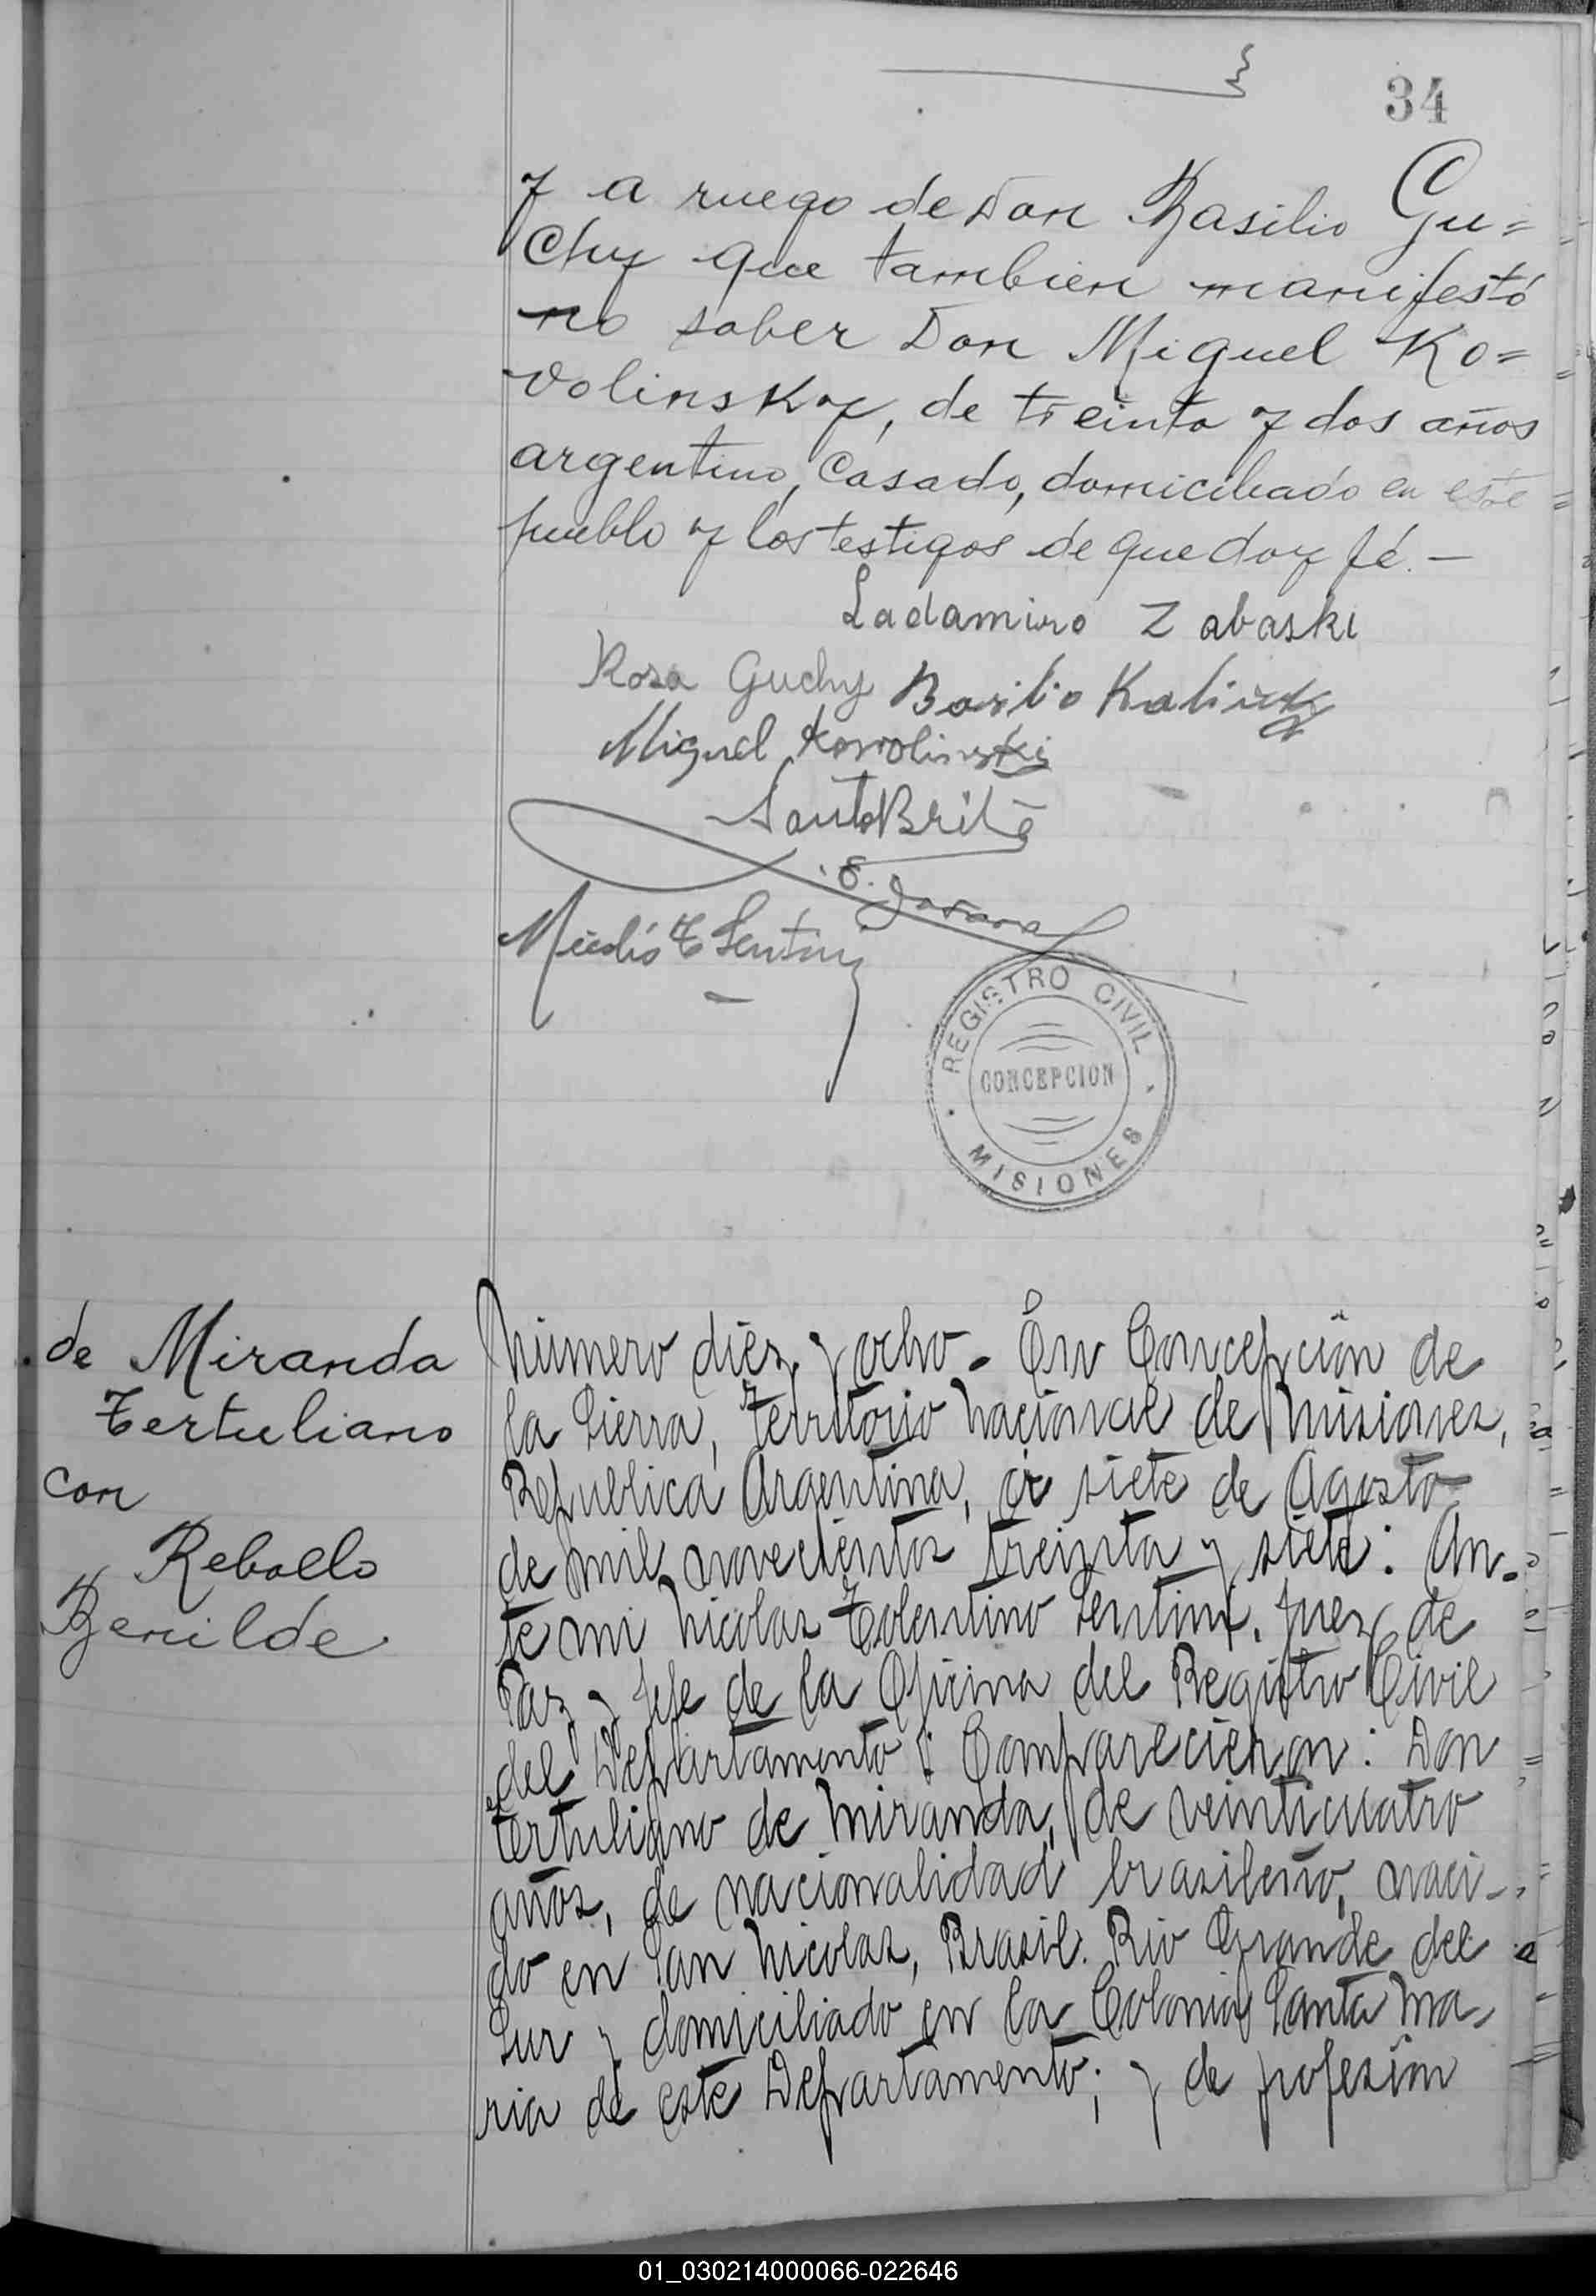 34
y a ruego de Don Basilio Gu=
chy que tambien manifestó
no saber Don Miguel Ko=
volinsky, de treinta y dos años
argentino, Casado, domiciliado en este
pueblo y los testigos de que doy fé.—
Ladamiro Zabaski
Rosa Guchy Basilio Kalinsky
Miguel Kowolinski
Santo Brite
REGISTRO CIVIL
CONCEPCION
MISIONES
de Miranda
Tertuliano
con
Rebollo
Benilde
Número diez y ocho. En Concepción de
la Sierra, Territorio Nacional de Misiones,
Republica Argentina, a siete de Agosto
de mil novecientos treinta y siete: An-
te mi Nicolas Tolentino Sentini, Juez de
Paz y Jefe de la Oficina del Registro Civil
del Departamento: Comparecieron: Don
Tertuliano de Miranda, de veinticuatro
años, de nacionalidad brasileño, naci-
do en San Nicolas, Brasil. Rio Grande del
Sur y domiciliado en la Colonia Santa Ma-
ria de este Departamento; y de profesión
01_030214000066-022646